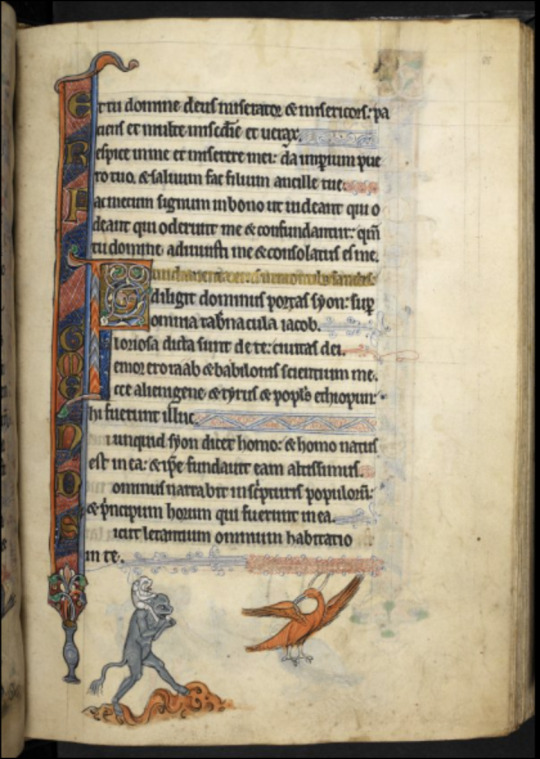 Et tu domine deus miserator & misericors: pa
ciens et multe misedie et uerax.
Respice in me et miserere mei: da imperium pue
ro tuo. & saluum fac filium ancille tue.
Fac mecum signum in bono ut uideant qui o
derunt me & confundantur: qm
tu domine adiuuisti me & consolatus es me.
Fundamenta eius in montibus sanctis:
diligit dominus portas syon: sup
omnia tabnacula iacob.
Gloriosa dicta sunt de te: ciuitas dei.
Memor ero raab & babilonis scientium me.
Ecce alienigene & tyrus & popls ethiopum:
hi fuerunt illuc.
Nunquid syon dicet homo: & homo natus
est in ea: & ipe fundauit eam altissimus.
Dominus narrabit in scpturis populorum:
& pncipum horum qui fuerunt in ea.
Sicut letantium omnium habitatio
in te.